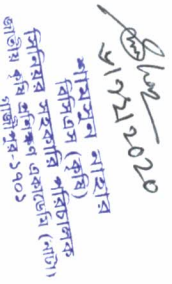 ০৮/১২/২০২০
শামসুন নাহার
বিসিএস (কৃষি)
সিনিয়র সহকারি পরিচালক
জাতীয় কৃষি প্রশিক্ষণ একাডেমি (নাটা)
গাজীপুর-১৭০১